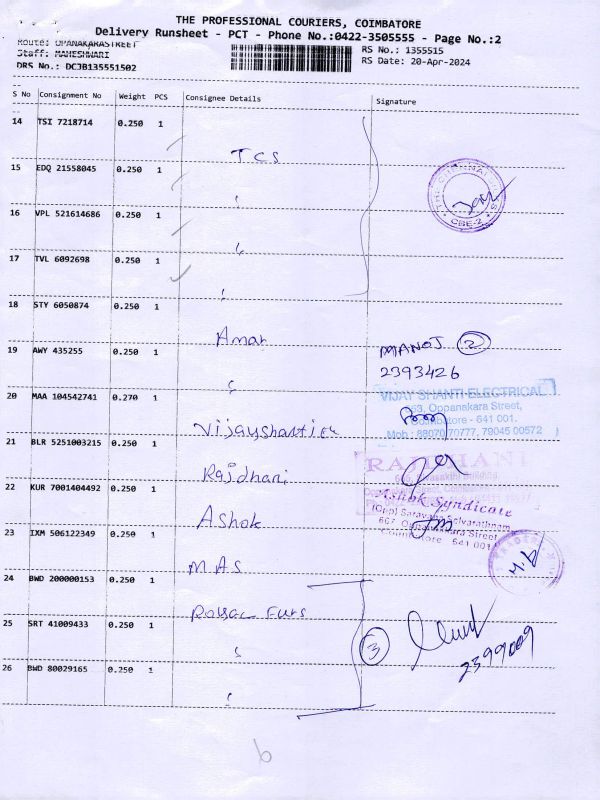 THE PROFESSIONAL COURIERS, COIMBATORE
Delivery Runsheet - PCT - Phone No.:0422-3505555 - Page No.:2
Route: OPANAKARASTREET
Staff: MAHESHWARI
DRS No.: DCJB135551502
RS No.: 1355515
RS Date: 20-Apr-2024
S No Consignment No Weight PCS Consignee Details Signature
14 TSI 7218714 0.250 1
TCS
15 EDQ 21558045 0.250 1
CBE-2
16 VPL 521614686 0.250 1
17 TVL 6092698 0.250 1
18 STY 6050874 0.250 1
Amar
MANOJ 2
19 AWY 435255 0.250 1
2393426
20 MAA 104542741 0.270 1
VIJAY SHANTI ELECTRICAL
Oppanakara Street,
Coimbatore - 641 001.
Mob : 88070 70777, 79045 00572
Vijayshanti Ele
21 BLR 5251003215 0.250 1
RAJDHANI
Rajdhani
22 KUR 7001404492 0.250 1
Ashok Syndicate
(Opp) Saravana Selvarathnam
667, Oppanakara Street
Coimbatore - 641 001
Ashok
23 IXM 506122349 0.250 1
M.A.S
24 BWD 200000153 0.250 1
25 SRT 41009433 0.250 1
3
2399009
26 BWD 80029165 0.250 1